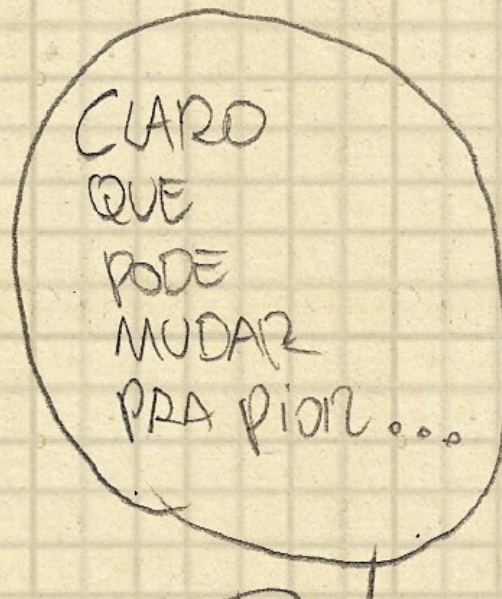 CLARO
QUE
PODE
MUDAR
PRA PiOR...